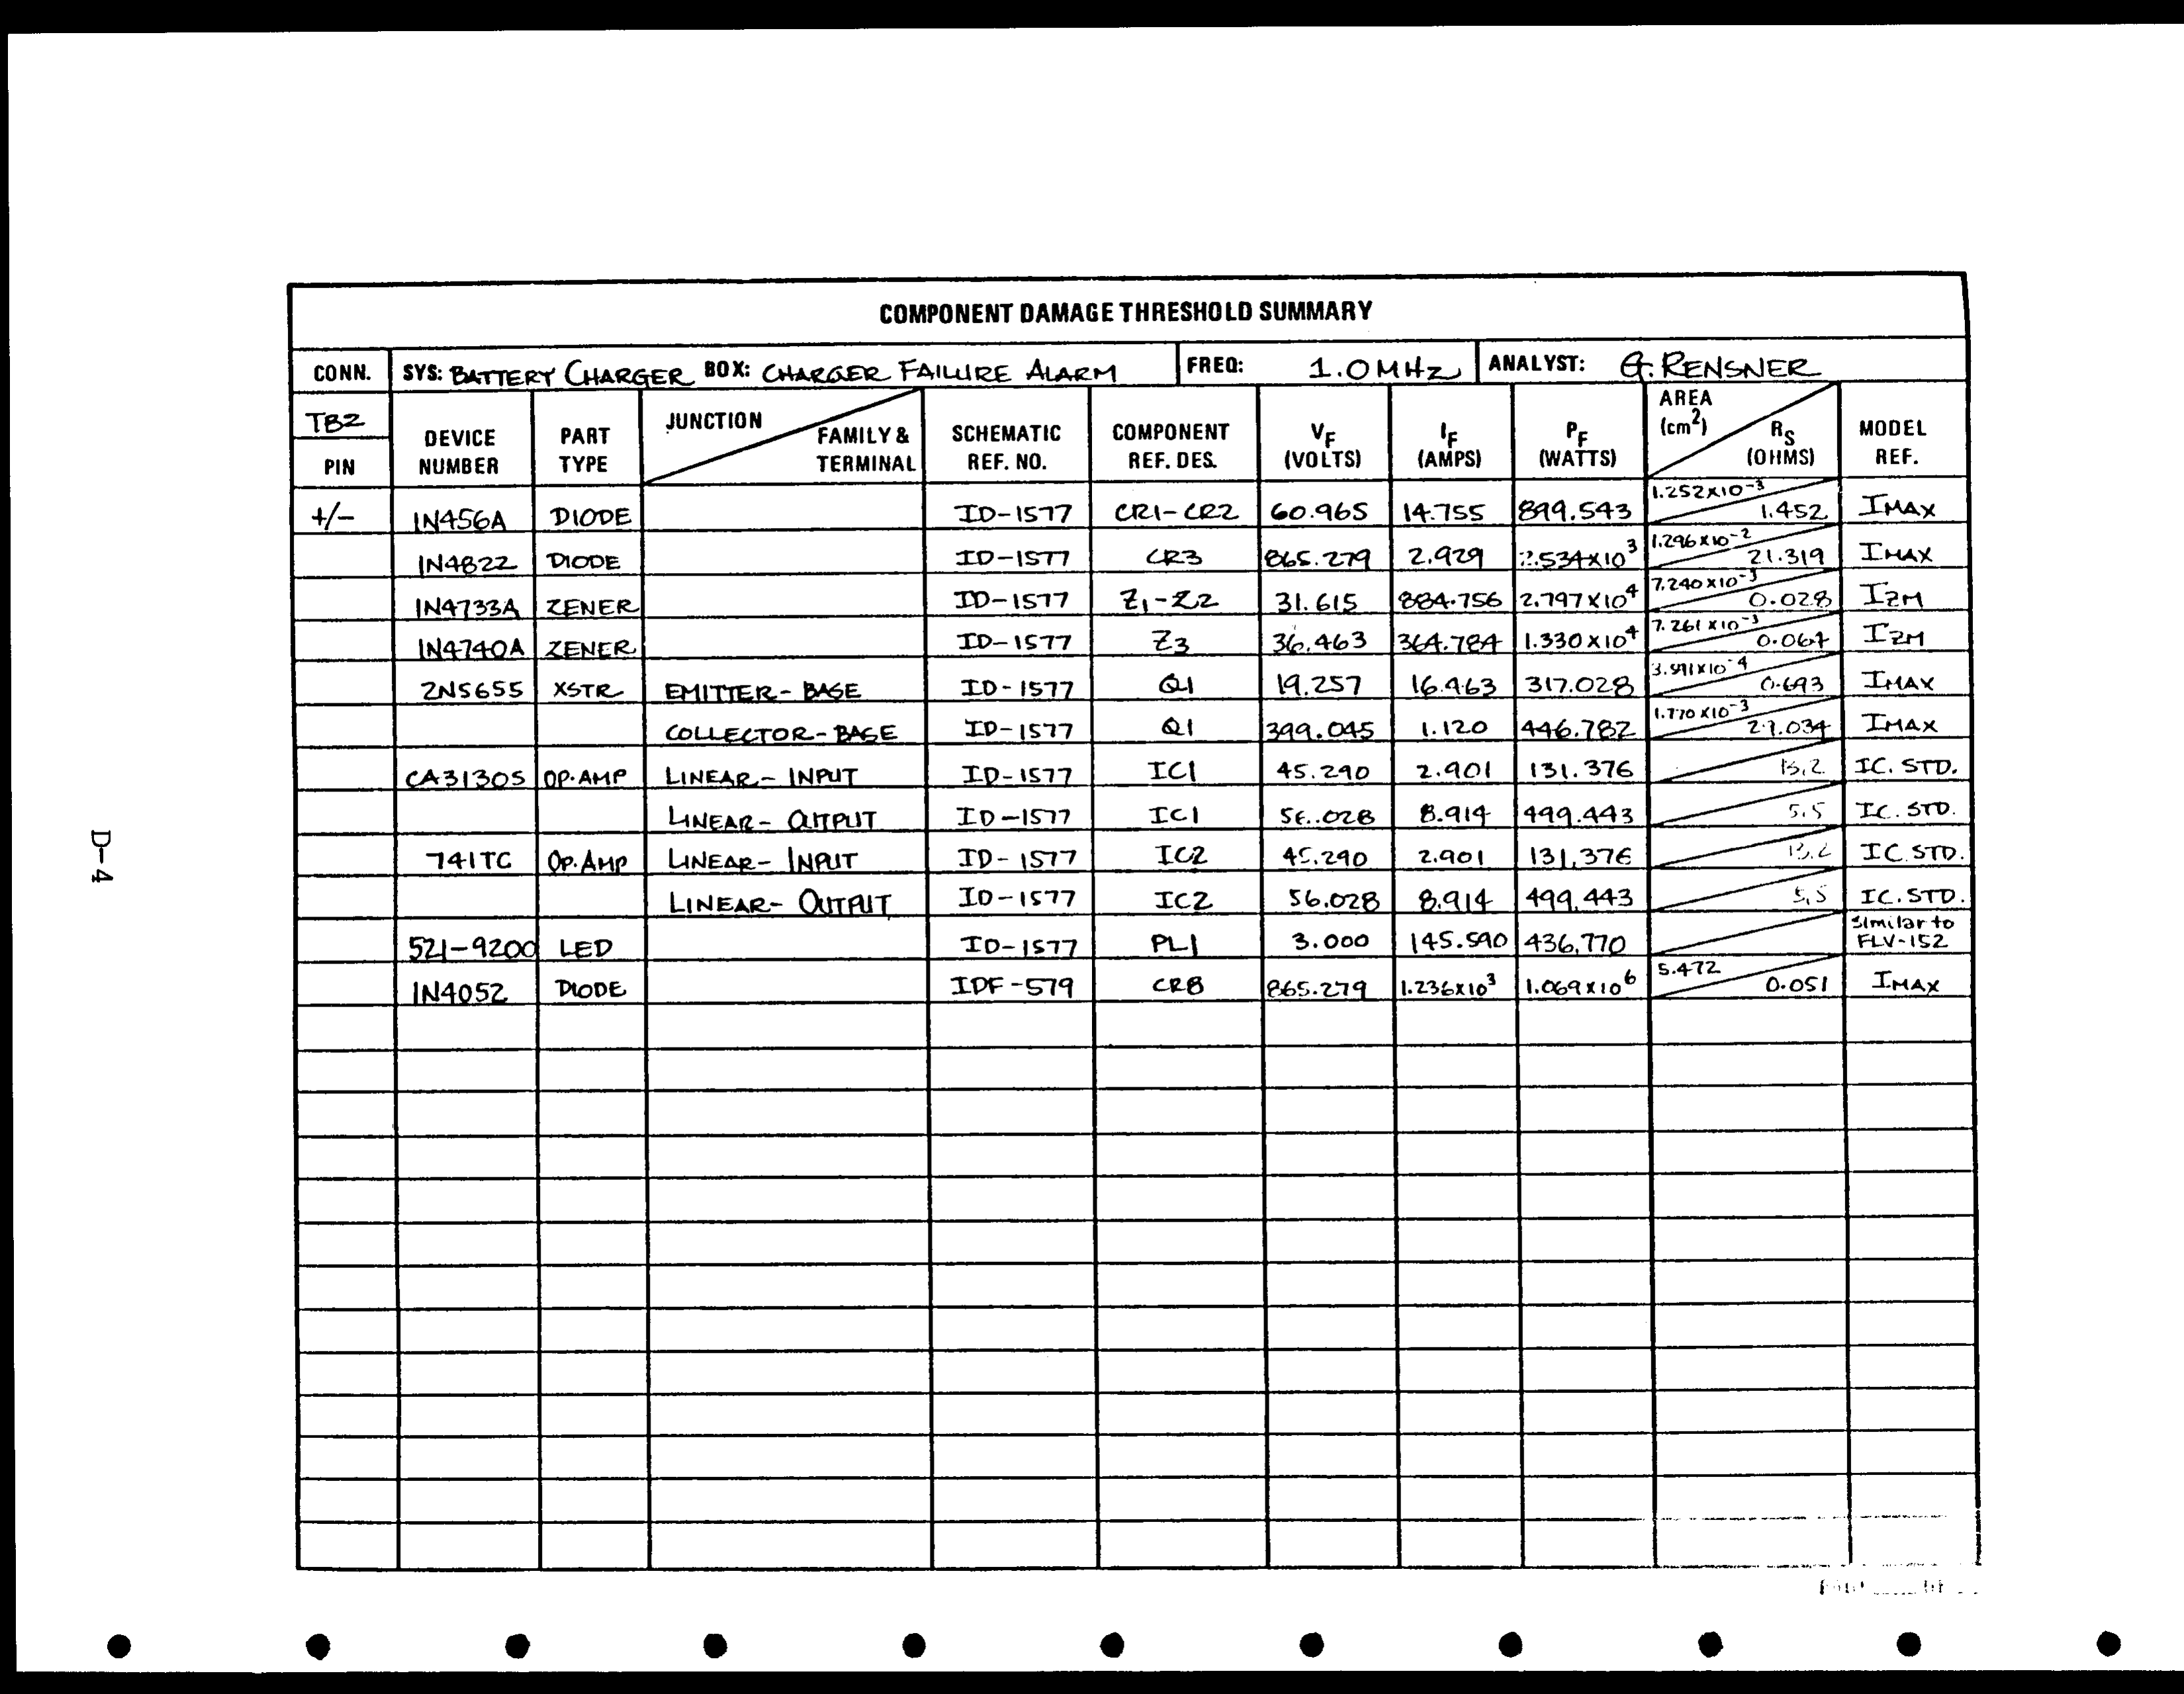 COMPONENT DAMAGE THRESHOLD SUMMARY
CONN. SYS: BATTERY CHARGER BOX: CHARGER FAILURE ALARM FREQ: 1.0 MHz ANALYST: G. RENSNER
TB2 DEVICE NUMBER PART TYPE JUNCTION FAMILY & TERMINAL SCHEMATIC REF. NO. COMPONENT REF. DES. VF (VOLTS) IF (AMPS) PF (WATTS) AREA (cm2) RS (OHMS) MODEL REF.
PIN
+/- 1N456A DIODE ID-1577 CR1-CR2 60.965 14.755 899.543 1.252x10-3 1.452 IMAX
1N4822 DIODE ID-1577 CR3 865.279 2.929 2.534x10³ 1.296x10-2 21.319 IMAX
1N4733A ZENER ID-1577 Z1-Z2 31.615 884.756 2.797x10⁴ 7.240x10-3 0.028 IZM
1N4740A ZENER ID-1577 Z3 36.463 364.784 1.330x10⁴ 7.261x10-3 0.067 IZM
2N5655 XSTR EMITTER-BASE ID-1577 Q1 19.257 16.463 317.028 3.591x10-4 0.693 IMAX
COLLECTOR-BASE ID-1577 Q1 399.045 1.120 446.782 1.770x10-3 IMAX
CA3130S OP.AMP LINEAR-INPUT ID-1577 IC1 45.290 2.901 131.376 13.2 IC. STD.
LINEAR-OUTPUT ID-1577 IC1 56.028 8.914 499.443 5.5 IC. STD.
741TC OP.AMP LINEAR-INPUT ID-1577 IC2 45.290 2.901 131.376 13.2 IC. STD.
LINEAR-OUTPUT ID-1577 IC2 56.028 8.914 499.443 5.5 IC. STD.
521-9200 LED ID-1577 PL1 3.000 145.590 436.770 Similar to FLV-152
1N4052 DIODE IDF-579 CR8 865.279 1.236x10³ 1.069x10⁶ 5.472 0.051 IMAX
D-4